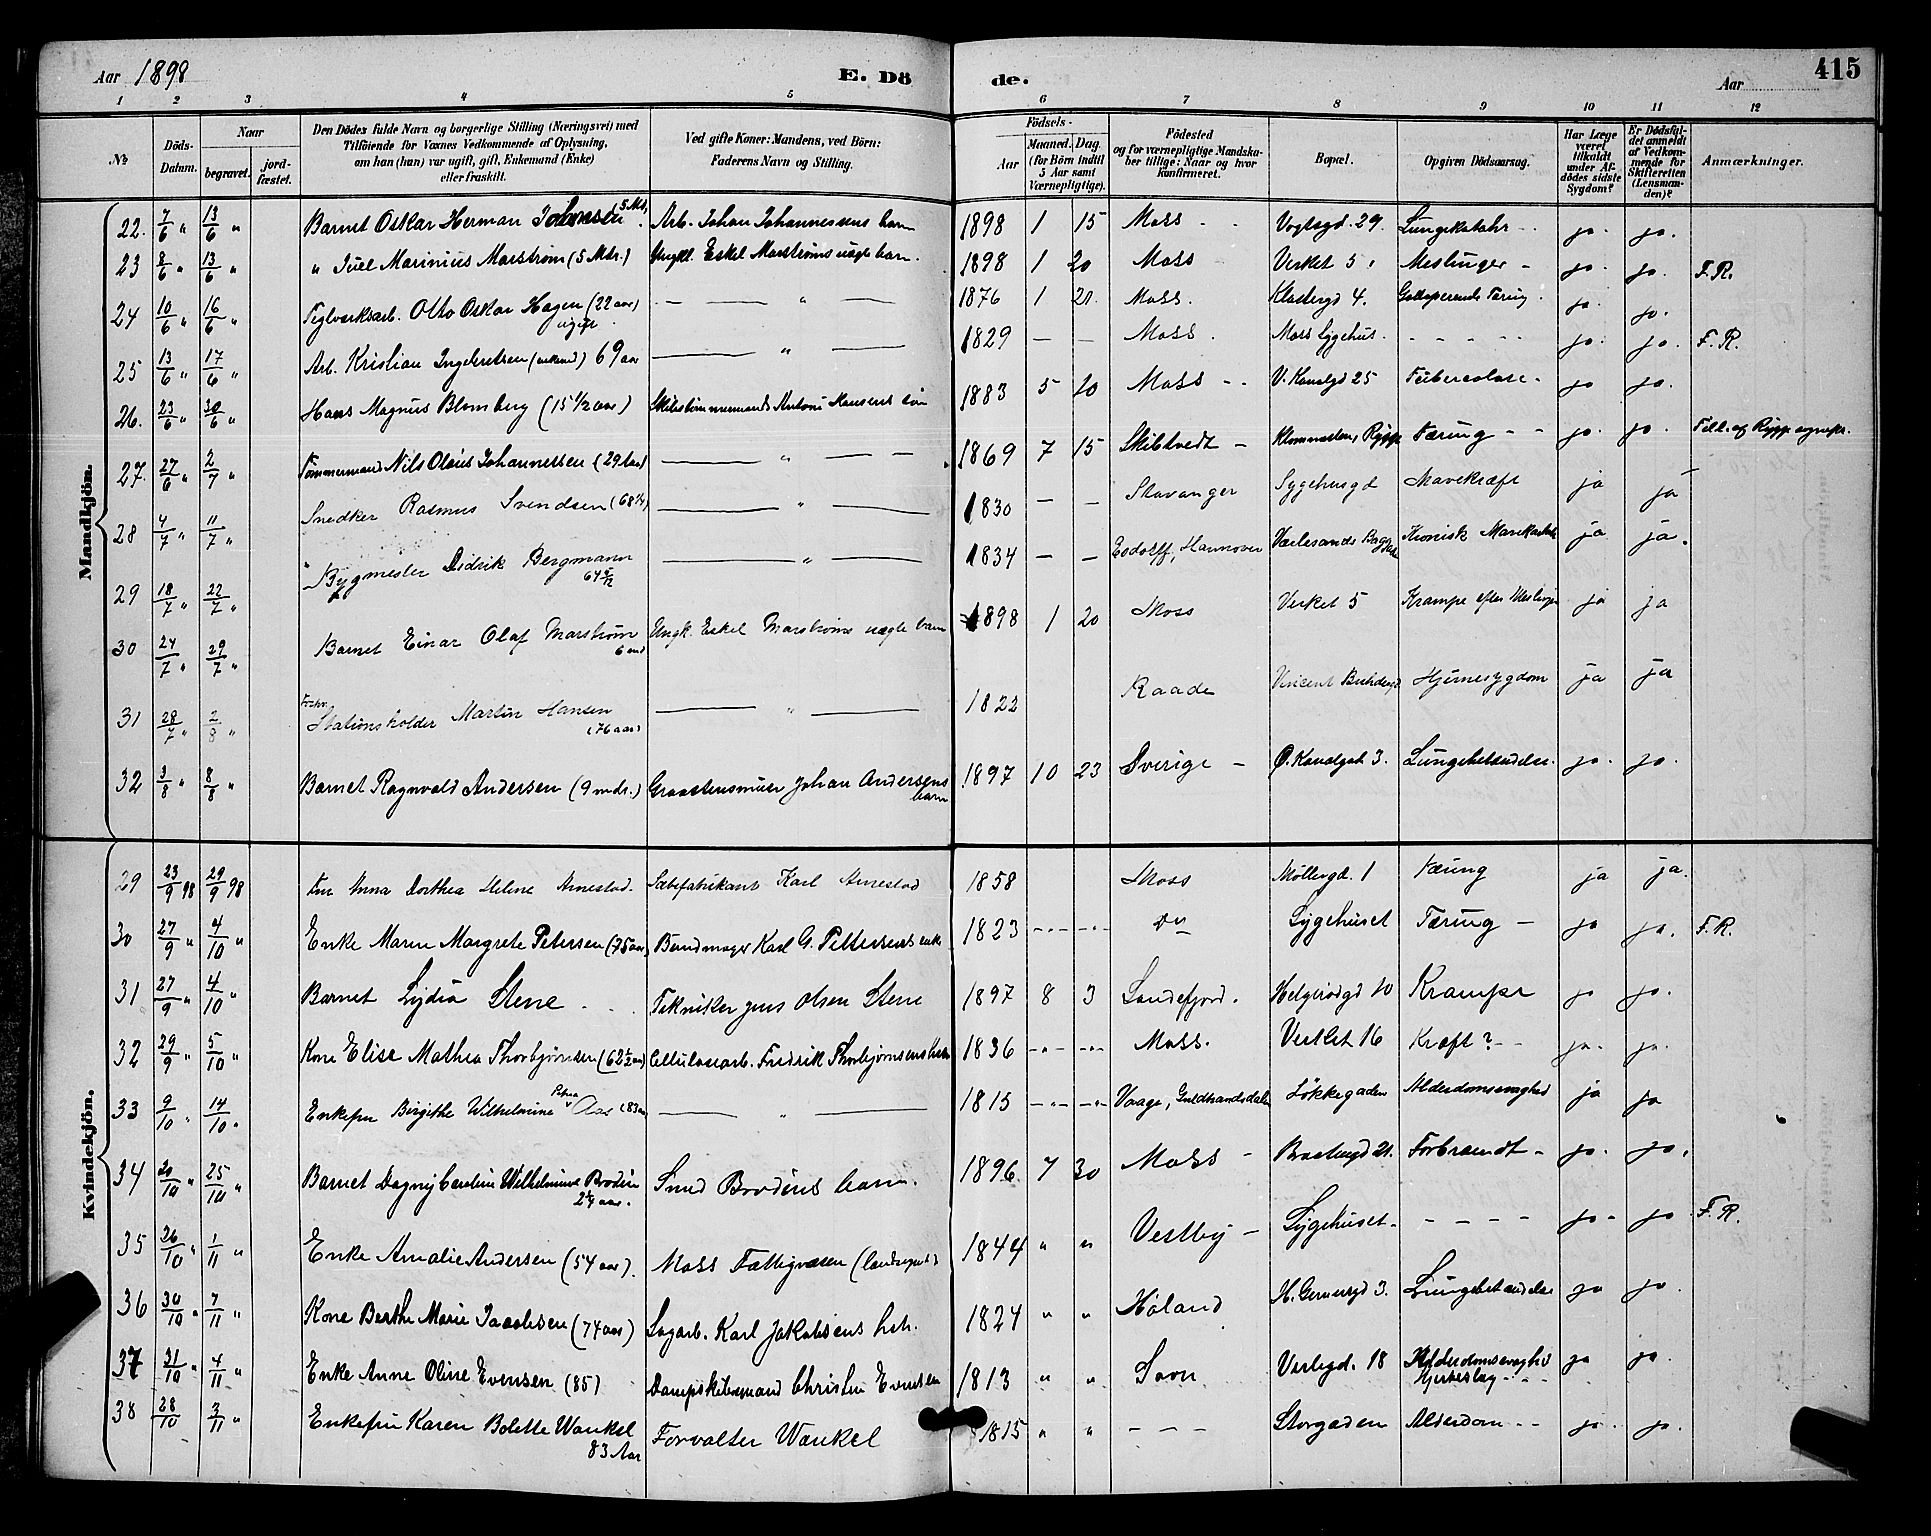 Aar 1898
E. Dö
de.
Aar
415
1 2 3 4 5 6 7 8 9 10 11 12
No
Döds-Datum.
Naar
begravet.
jord-fæstet.
Den Dödes fulde Navn og borgerlige Stilling (Næringsvei) med
Tilföiende for Voxnes Vedkommende af Oplysning,
om han (hun) var ugift, gift, Enkemand (Enke)
eller fraskilt.
Ved gifte Koner: Mandens, ved Börn:
Faderens Navn og Stilling.
Födsels-
Aar
Maaned. Dag.
(for Börn indtil
5 Aar samt
Værnepligtige).
Födested
og for værnepligtige Mandska-
ber tillige: Naar og hvor
konfirmeret.
Bopæl.
Opgiven Dödsaarsag.
Har Læge
været
tilkaldt
under Af-
dödes sidste
Sygdom?
Er Dödsfal-
det anmeldt
af Vedkom-
mende for
Skifteretten
(Lensman-
den)?
Anmærkninger.
Mandkjön.
22. 7/6 " 13/6 " Barnet Oskar Herman Johansen 5 Mdr. Arb. Johan Johannessens barn 1898 1 15 Moss Vogtsgd. 29. Lungekatahr ja. ja.
23 8/6 " 13/6 " " Juel Marinius Marstrøm (5 Mdr.) Ungkl. Eskel Marstrøms uægte barn. 1898 1 20 Moss Verket 5. Meslinger ja. ja. F.R.
24 10/6 " 16/6 " Teglverksarb. Otto Oskar Hagen (22 aar) ugift — " — 1876 1 21. Moss. Klostergd 4. Galloperende Tæring. ja. ja.
25 13/6 " 17/6 " Arb. Kristian Ingebretsen (enkemd) 69 aar — " — 1829 — — Moss. Moss Sygehus. - - - - - ja. ja. F.R.
26. 23/6 " 30/6 " Hans Magnus Blomberg (15 1/2 aar) Skibstømmermand Antoni Hansens søn 1883 5 20 Moss V. Kanalgd 25 Tuberculose ja ja.
27. 27/6 " 2/7 " Tømmermand Nils Olaus Johannessen (29 aar) — " — 1869 7 15 Skibtvedt Rygge Tæring - - ja. ja. Till. af Rygge sognepr.
28 4/7 " 11/7 " Snedker Rasmus Svendsen (68 1/4) — " — 1830 — — Stavanger Sygehusgd Mavekræft ja ja
29 18/7 " 22/7 " Bygmester Didrik Bergmann 64 5/12 — " — 1834 — — Hannover Værlesands Kronisk Mavekatarh ja ja.
30 24/7 " 29/7 " Barnet Einar Olaf Marstrøm 6 md Ungk. Eskel Marstrøms uægte barn 1898 1 20 Moss Verket 5 Krampe efter Meslinger ja ja
31 28/7 " 2/8 " Forhv. Stationsholder Martin Hansen (76 aar) — " — 1822 Raade Vincent Buddesgd Hjernesygdom ja ja
32 3/8 " 8/8 " Barnet Ragnvald Andersen (9 mdr.) Graastensmurer Johan Andersens barn 1897 10 23 Sverige Ø. Kanalgat 3. Lungebetændelse. ja. ja.
Kvindekjön.
29 23/9 98 29/9 98 Fru Anna Dorthea Helene Arnestad. Sæbefabrikant Karl Arnestad 1858 Moss Møllergd. 1 Tæring ja ja.
30 27/9 " 4/10 " Enke Maren Margrete Petersen (75 aar) Bundmager Karl G. Pettersens enke 1823 -"- -"- do Sygehuset Tæring — ja ja. F.R.
31 27/9 " 4/10 " Barnet Lydia Stene Tekniker Jens Olsen Stene 1897 8 3 Sandefjord. Helgerødgd 10 Krampe ja ja.
32 29/9 " 5/10 " Kone Elise Mathea Thorbjørnsen (62 1/2 aar) Cellulosearb. Fredrik Thorbjørnsens hstr 1836 -"- -"- Moss. Verket 16 Kræft? ja. ja.
33 9/10 " 14/10 " Enkefru Birgithe Wilhelmine Petrea Aas (83 aar) — " — 1815 -"- -"- Vaage, Guldbrandsdalen Løkkegaden Alderdomssvaghed ja ja
34 20/10 " 25/10 " Barnet Dagny Caroline Wilhelmine Brodin 2 1/4 aar. Smed Brodins barn. 1896 7 30 Moss Brostengd 21. Forbrændt ja. ja.
35 26/10 " 1/11 " Enke Amalie Andersen (54 aar). Moss Fattigvæsen (landsognet) 1844 " " Vestby Sygehuset. - - - - ja ja F.R.
36 30/10 " 7/11 " Kone Berthe Marie Jacobsen (74 aar) Sagarb. Karl Jakobsens hstr. 1824 " " Høland H. Gernersgd 3. Lungebetændelse ja ja.
37 31/10 " 4/11 " Enke Anne Oline Evensen (85) Dampskibsmand Christen Evensen 1813 " " Soon Værlegd. 18 Alderdomssvaghed Hjerteslag ja ja.
38 28/10 3/11 " Enkefru Karen Bolette Wankel 83 Aar Forvalter Wankel 1815 " " - - - Storgaden Alderdom ja. ja.